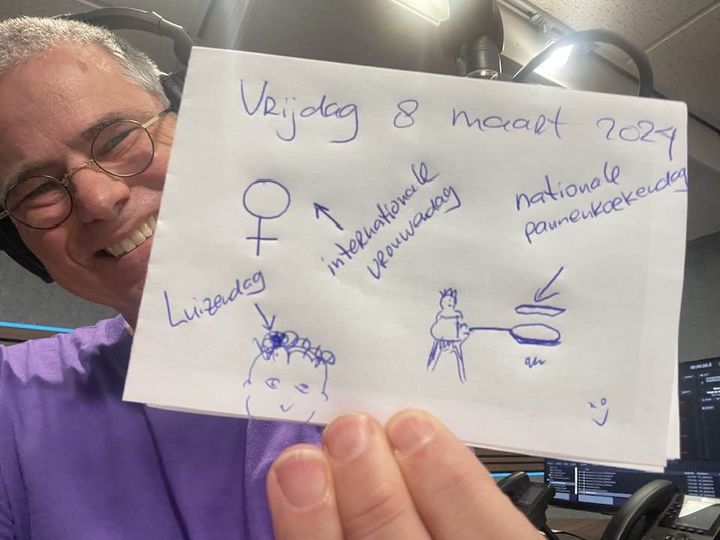 Vrijdag 8 maart 2024
internationale
vrouwadag
nationale
pannenkoekendag
Luizendag